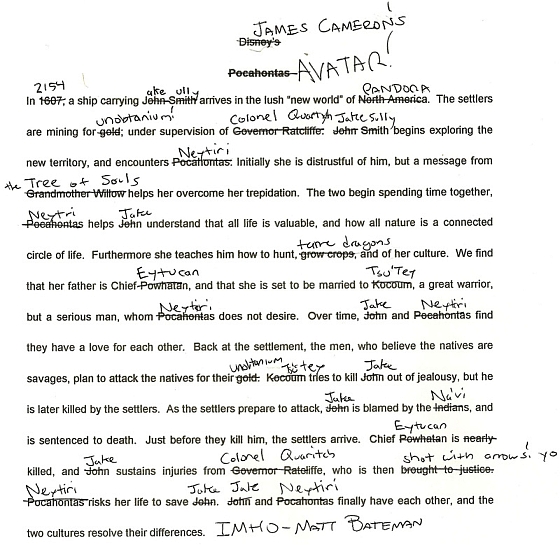 JAMES CAMERON'S
Disney's
Pocahontas AVATAR!
2154 ake ully PANDORA
In 1607, a ship carrying John Smith arrives in the lush "new world" of North America. The settlers
unobtanium! Colonel Quartyh Jake Sully
are mining for gold; under supervision of Governor Ratcliffe. John Smith begins exploring the
Neytiri
new territory, and encounters Pocahontas. Initially she is distrustful of him, but a message from
the Tree of Souls
Grandmother Willow helps her overcome her trepidation. The two begin spending time together,
Neytri Jake
Pocahontas helps John understand that all life is valuable, and how all nature is a connected
tame dragons
circle of life. Furthermore she teaches him how to hunt, grow crops, and of her culture. We find
Eytucan Tsu'Tey
that her father is Chief Powhatan, and that she is set to be married to Kocoum, a great warrior,
Neytiri Jake Neytiri
but a serious man, whom Pocahontas does not desire. Over time, John and Pocahontas find
they have a love for each other. Back at the settlement, the men, who believe the natives are
unobtanium Jake
savages, plan to attack the natives for their gold. Kocoum tries to kill John out of jealousy, but he
Jake Na'vi
is later killed by the settlers. As the settlers prepare to attack, John is blamed by the Indians, and
Eytucan
is sentenced to death. Just before they kill him, the settlers arrive. Chief Powhatan is nearly
Jake Colonel Quaritch shot with arrows! yo
killed, and John sustains injuries from Governor Ratcliffe, who is then brought to justice.
Neytiri Jake Jake Neytiri
Pocahontas risks her life to save John. John and Pocahontas finally have each other, and the
two cultures resolve their differences. IMHO - MATT BATEMAN